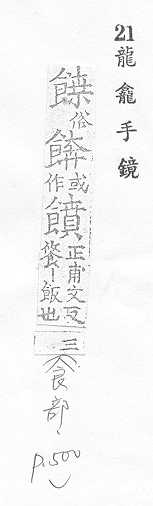 21 龍龕手鏡
俗
餴
或作
饙
正甫文反
丨飯也
三
食部、
P.500